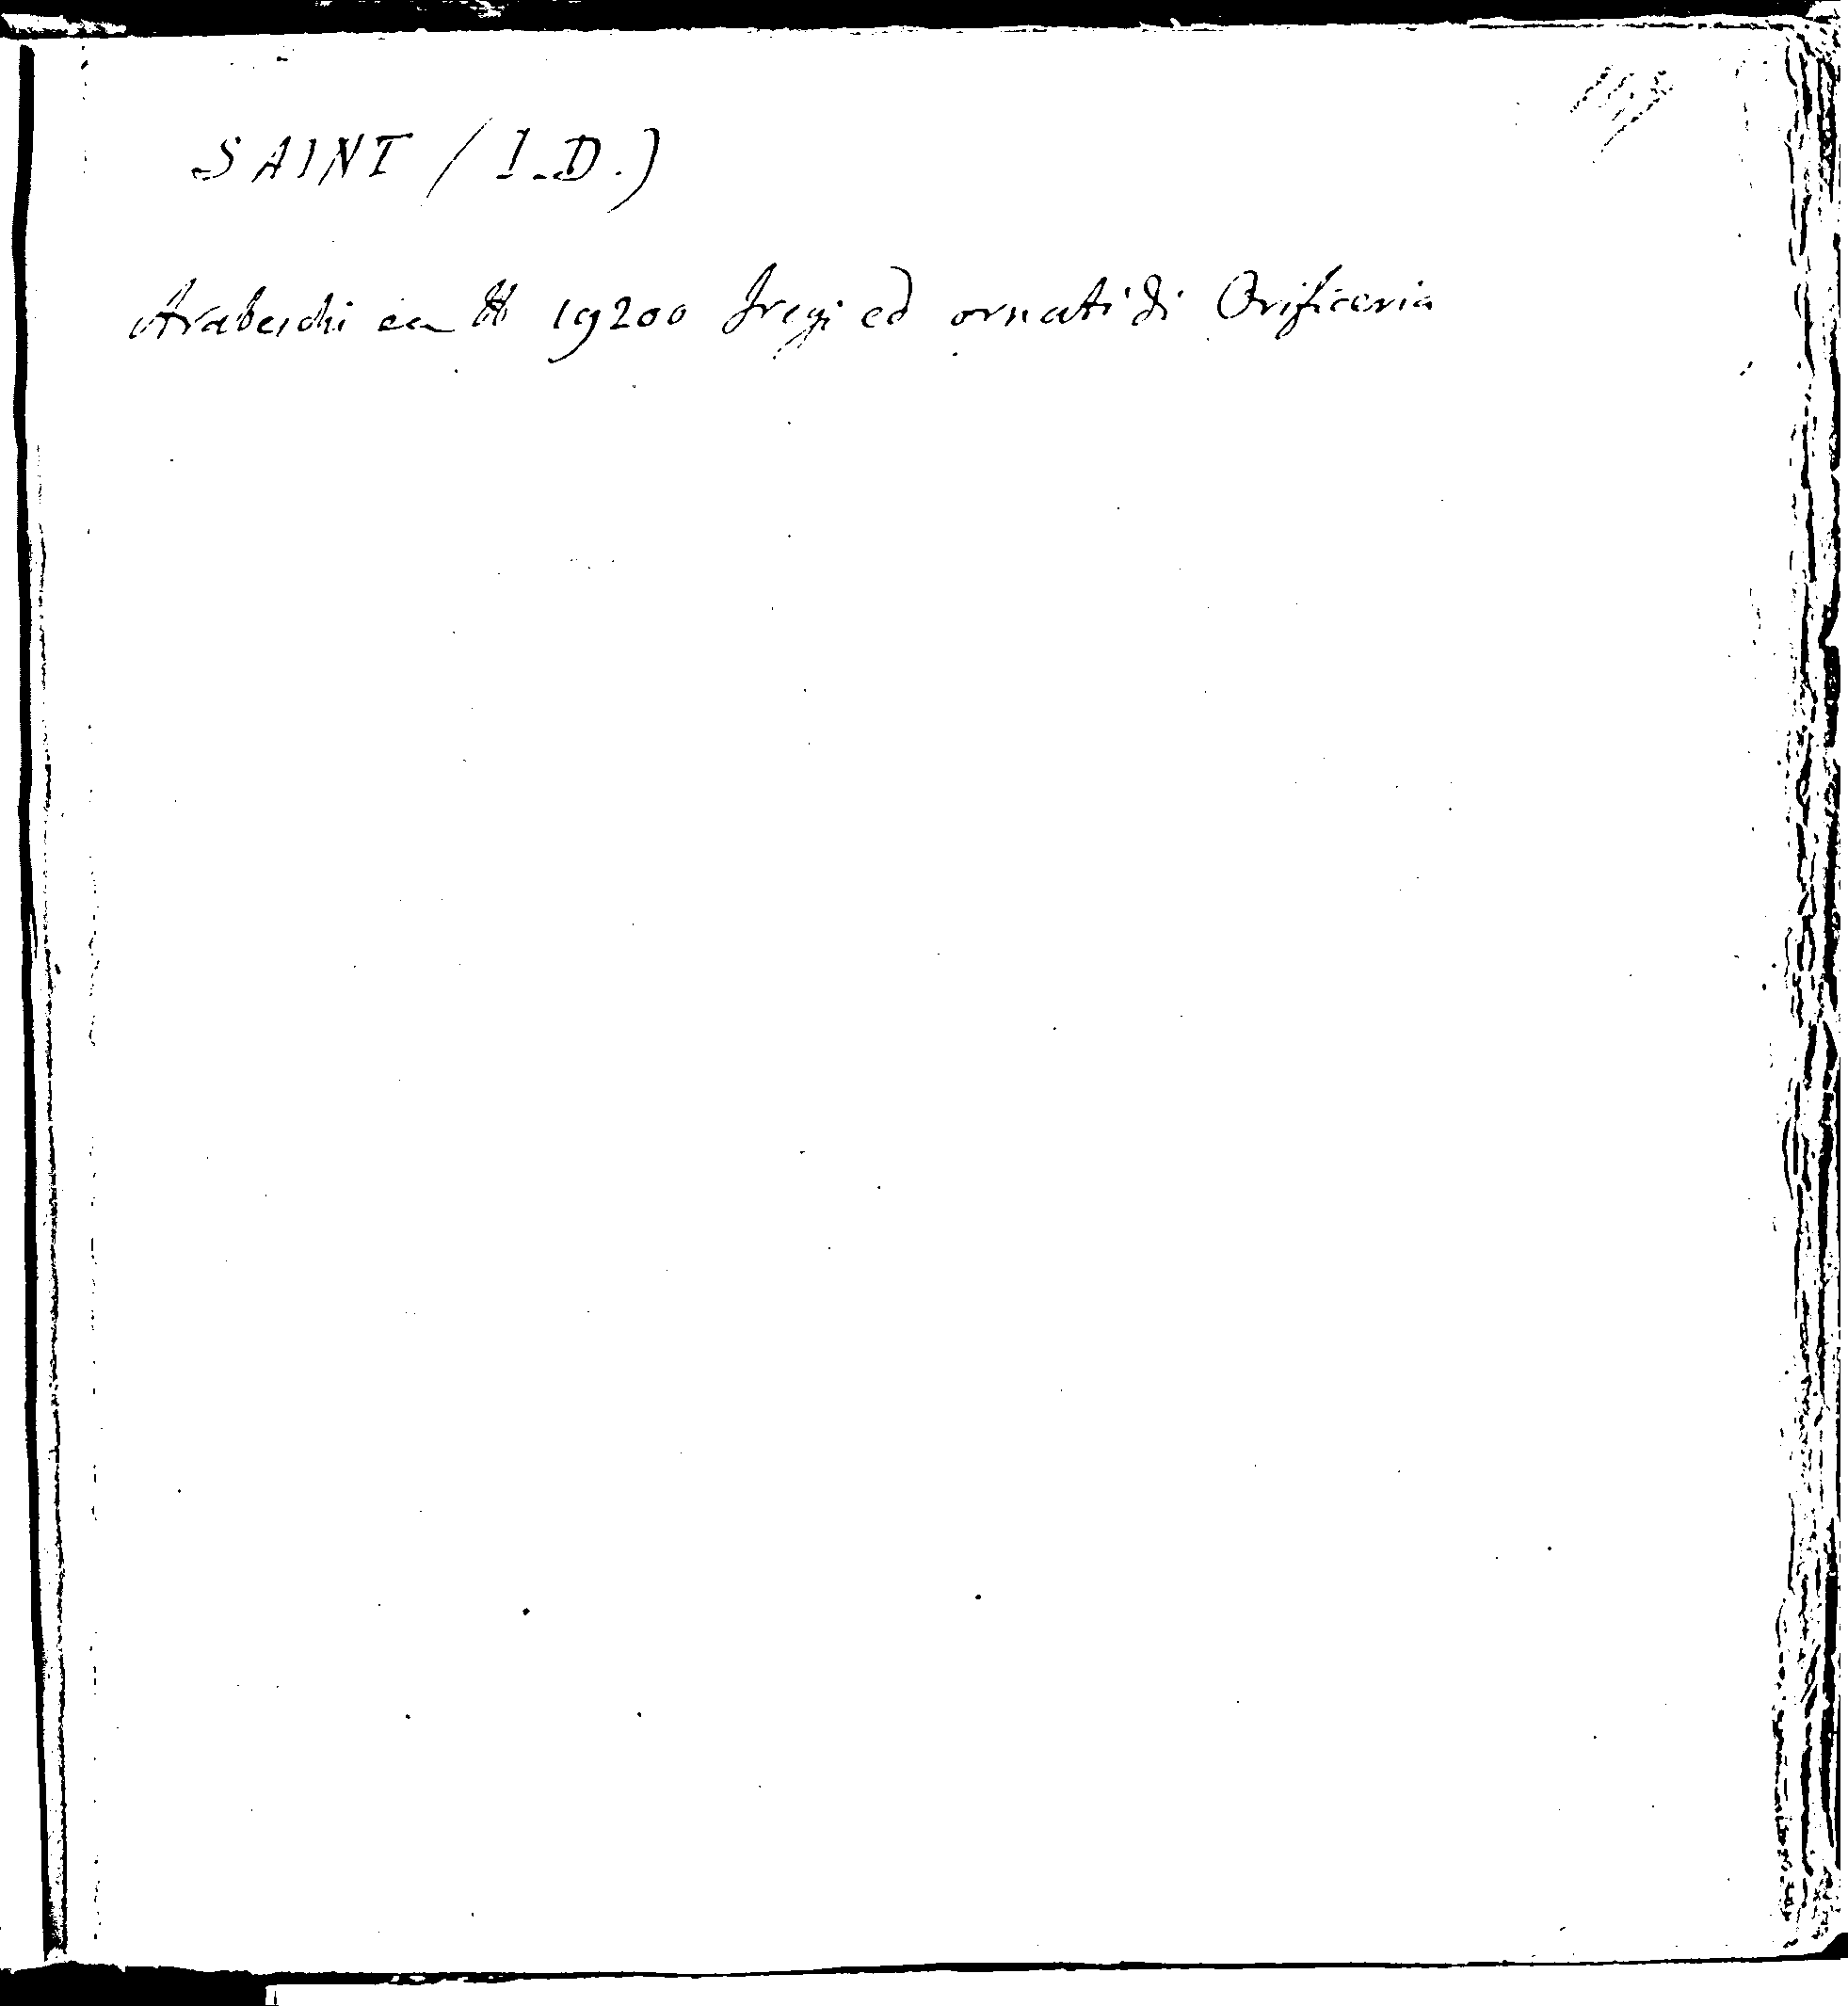 SAINT (I.D.)
Arabeschi ea H 19200 Fregi ed ornati di Orificeria